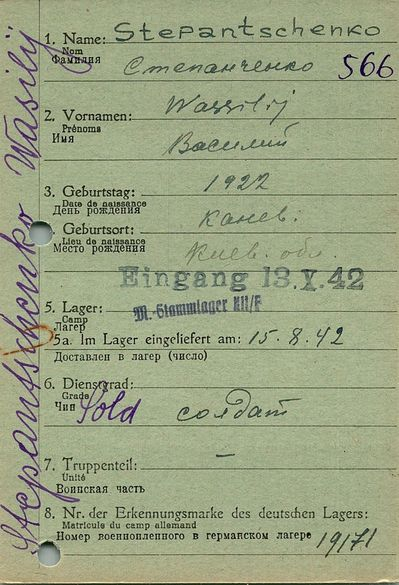 Stepantschenko Wasilij
1. Name: Stepantschenko
Nom
Фамилия Степанченко 566
2. Vornamen: Wassilij
Prénoms
Имя Василий
3. Geburtstag: 1922
Date de naissance
День рождения
Geburtsort: Канев.
Lieu de naissance
Место рождения Киев. обл
Eingang 13.X.42
5. Lager: M.-Stammlager
Camp
Лагерь
5a. Im Lager eingeliefert am: 15.8.42
Доставлен в лагерь (число)
6. Dienstgrad:
Grade
Чин Sold солдат
7. Truppenteil: –
Unité
Воинская часть
8. Nr. der Erkennungsmarke des deutschen Lagers:
Matricule du camp allemand
Номер военнопленного в германском лагере 19171